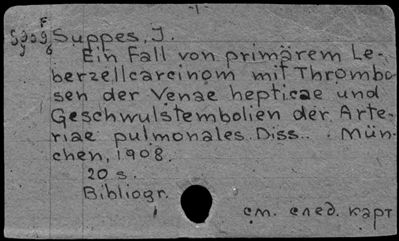 -1-
Suppes, J.
Ein Fall von primärem Le-
berzellcarcinom mit Thrombo
sen der Venae hepticae und
Geschwulstembolien der Arte-
riae pulmonales. Diss. . Mün-
chen, 1908.
20 s.
Bibliogr.
см. след. карт